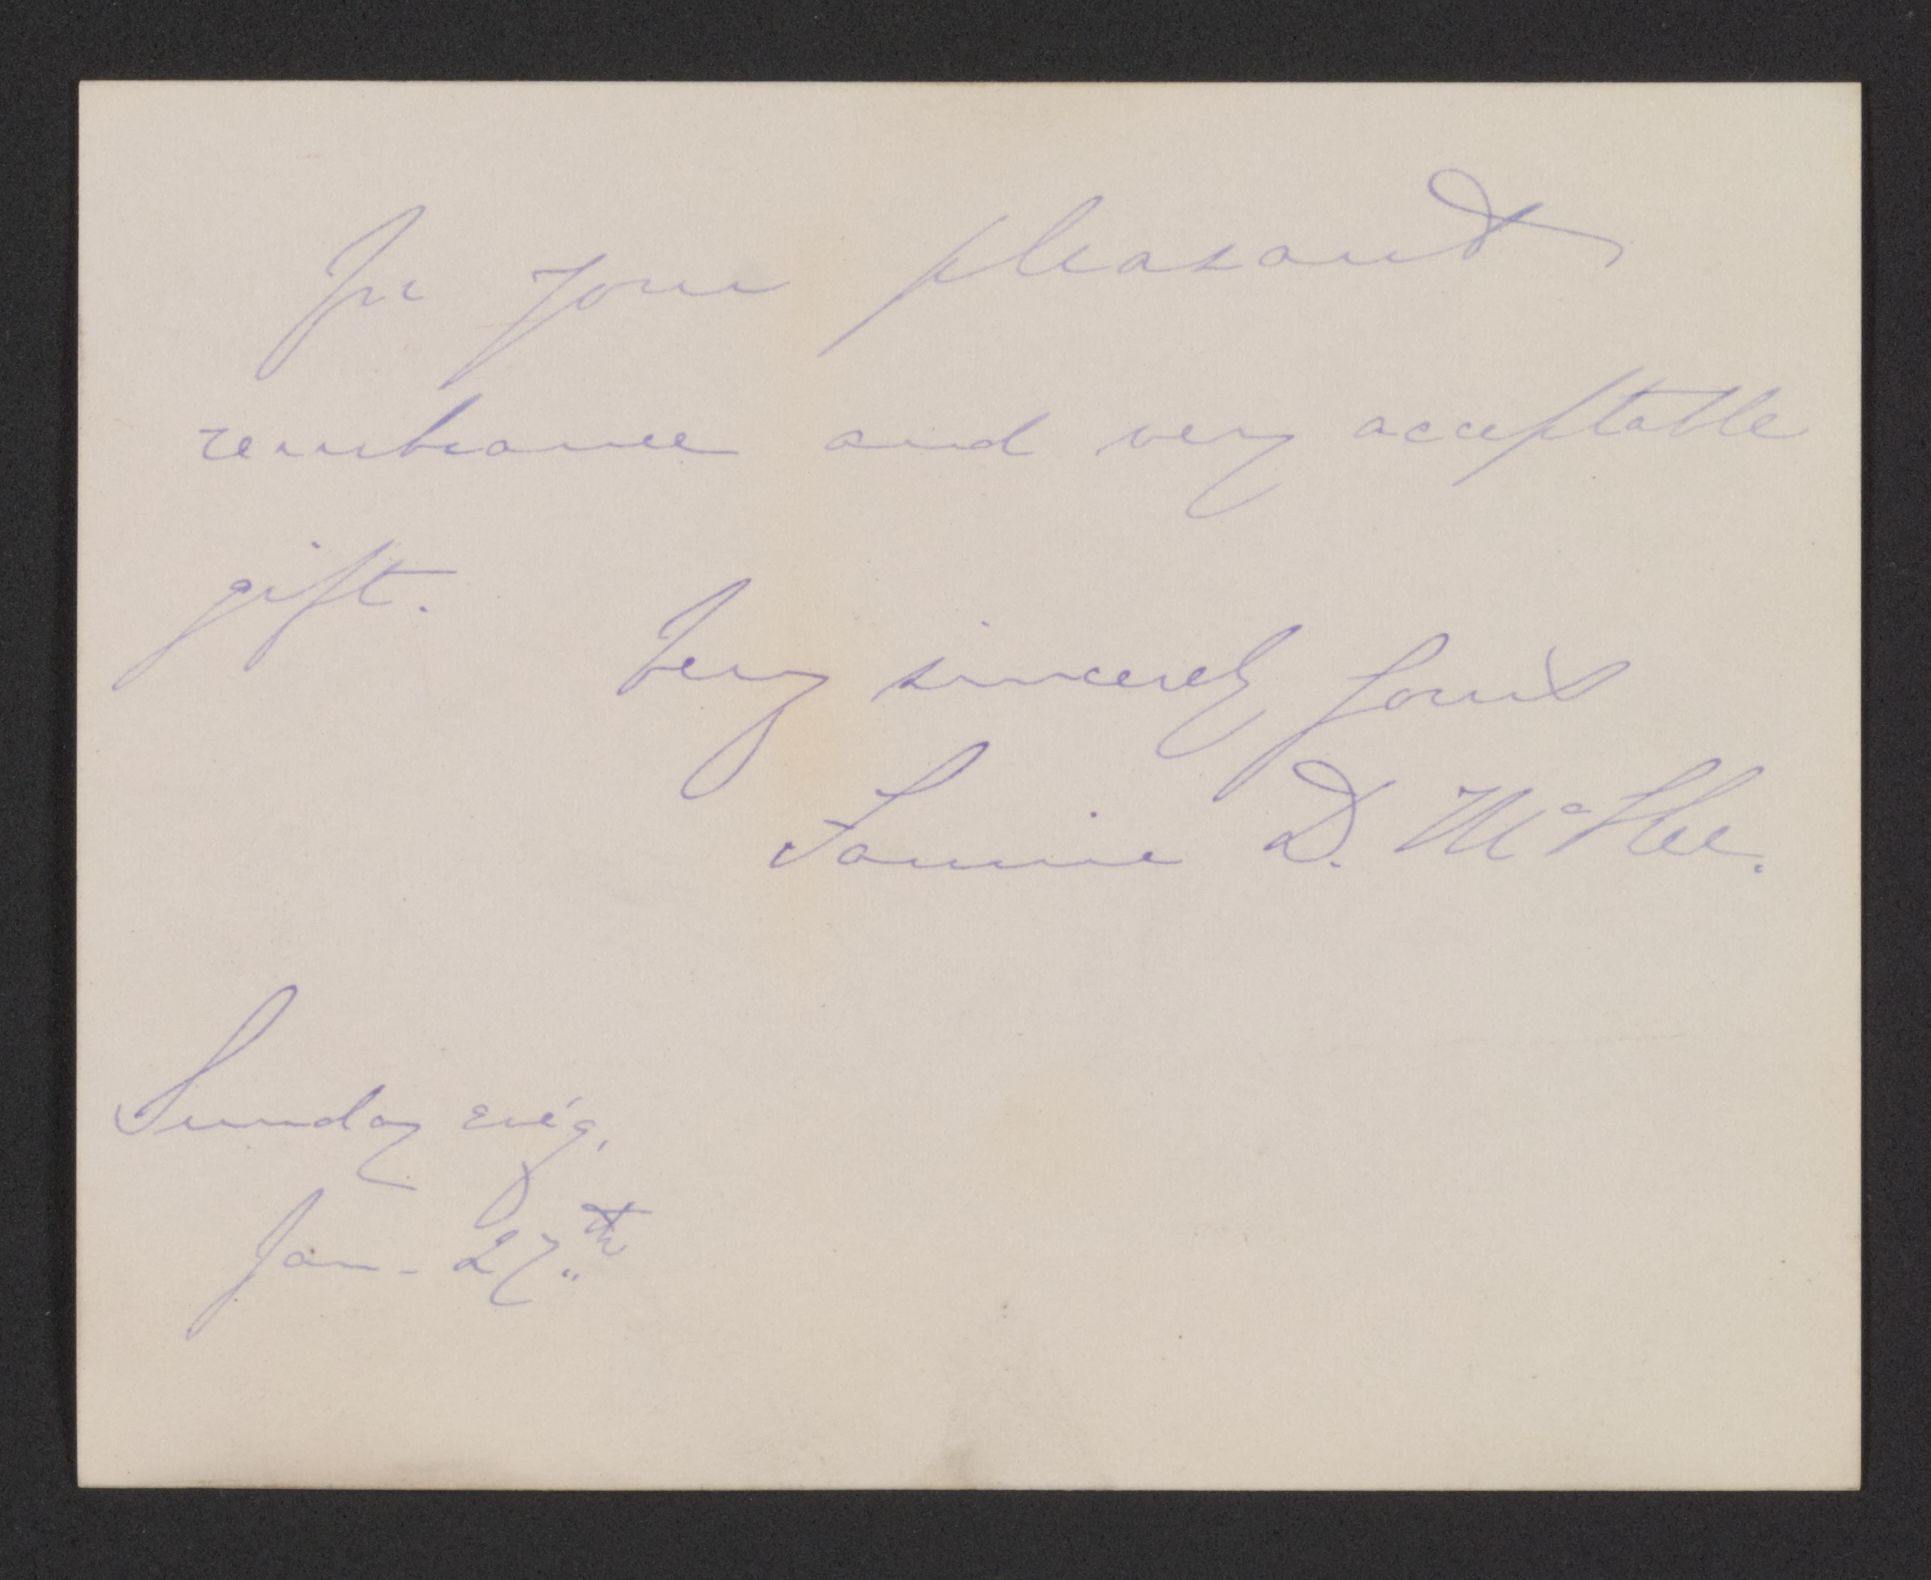 For your pleasant
rembrance and very acceptable
gift.
Very sincerely yours
Fannie D. McKee.
Sunday ev'g,
Jan - 27.th